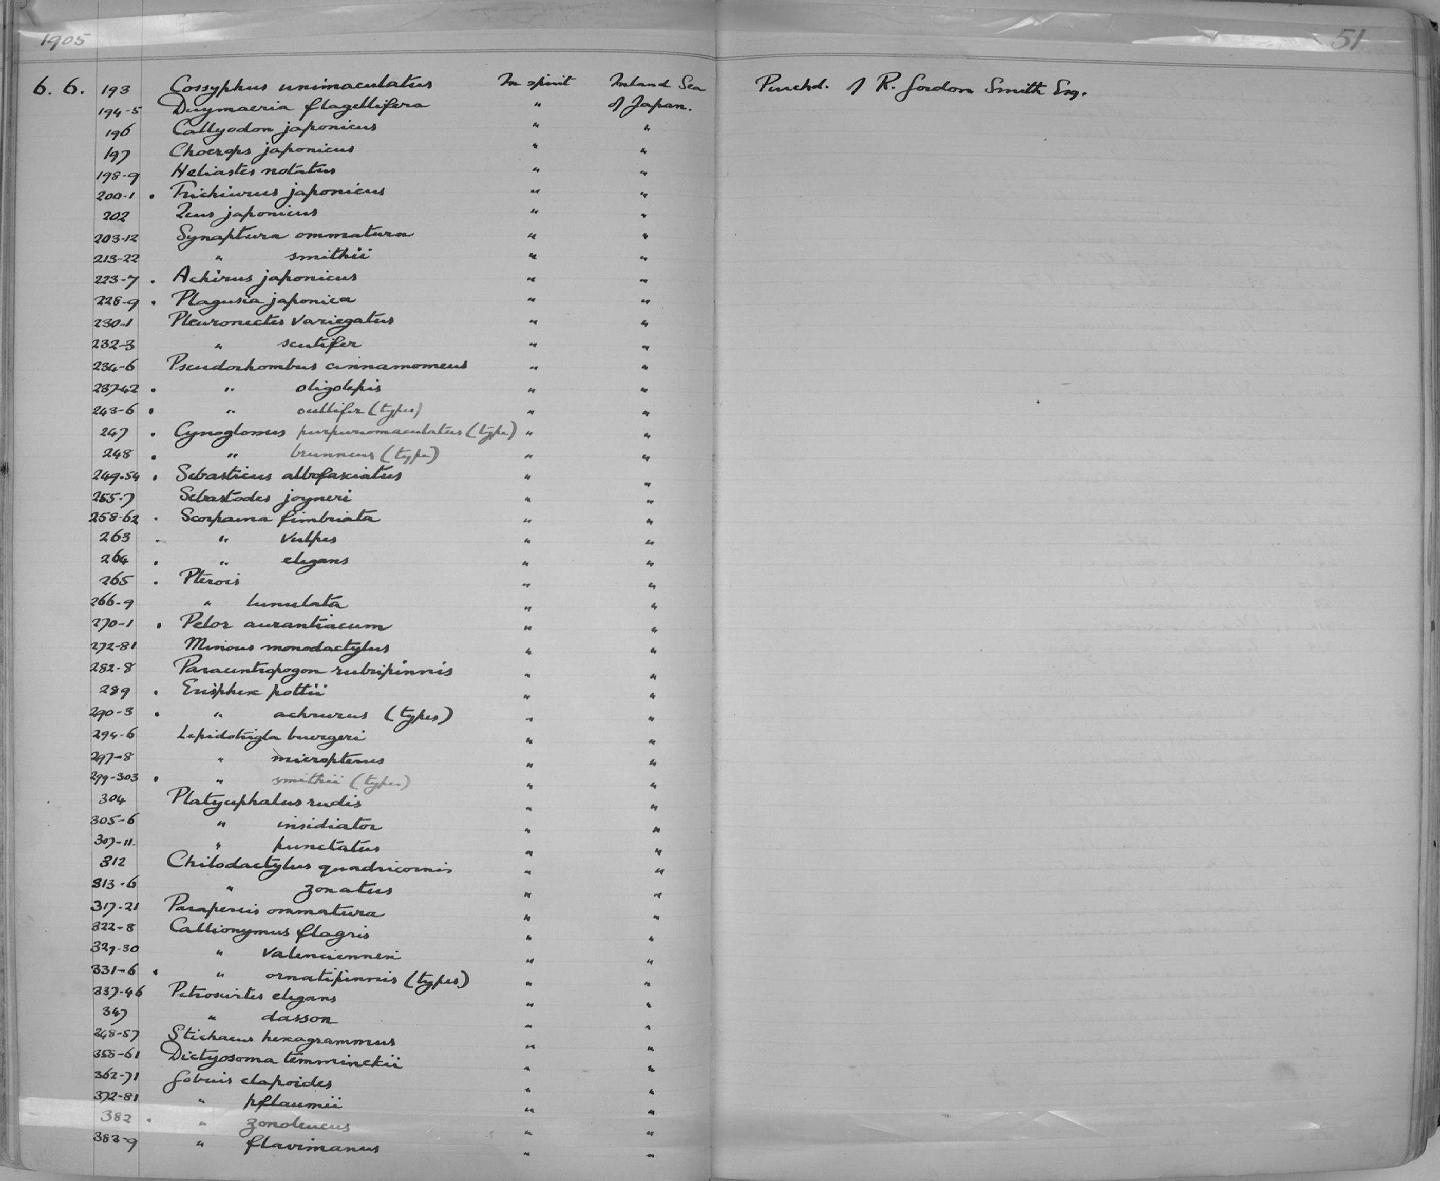 1905
51
6. 6. 193 Cossyphus unimaculatus In spirit Inland Sea Purchd. of R. Gordon Smith Esq.
194-5 Duymaeria flagellifera " of Japan.
196 Callyodon japonicus " "
197 Choerops japonicus " "
198-9 Heliastes notatus " "
200-1 . Trichiurus japonicus " "
202 Zeus japonicus " "
203-12 Synaptura ommatura " "
213-22 " smithii " "
223-7 . Achirus japonicus " "
228-9 . Plagusia japonica " "
230-1 Pleuronectes variegatus " "
232-3 " scutifer " "
234-6 Pseudorhombus cinnamomeus " "
237-42 . " oligolepis " "
243-6 . " ocellifer (types) " "
247 . Cynoglossus purpuromaculatus (type) " "
248 . " brunneus (type) " "
249-54 . Sebasticus albofasciatus " "
255-7 Sebastodes joyneri " "
258-62 . Scorpaena fimbriata " "
263 . " vulpes " "
264 . " elegans " "
265 . Pterois " "
266-9 " lunulata " "
270-1 . Pelor aurantiacum " "
272-81 Minous monodactylus " "
282-8 Paracentropogon rubripinnis " "
289 . Erisphex pottii " "
290-3 . " achrurus (types) " "
294-6 Lepidotrigla buergeri " "
297-8 " micropterus " "
299-303 . " smithii (types) " "
304 Platycephalus rudis " "
305-6 " insidiator " "
307-11 " punctatus " "
312 Chilodactylus quadricornis " "
313-6 " zonatus " "
317-21 Parapercis ommatura " "
322-8 Callionymus flagris " "
329-30 " valenciennesi " "
331-6 . " ornatipinnis (types) " "
337-46 Petroscirtes elegans " "
347 " dasson " "
248-57 Stichaeus hexagrammus " "
358-61 Dictyosoma temminckii " "
362-71 Gobius elapoides " "
372-81 " pflaumii " "
382 . " zonoleucus " "
383-9 " flavimanus " "